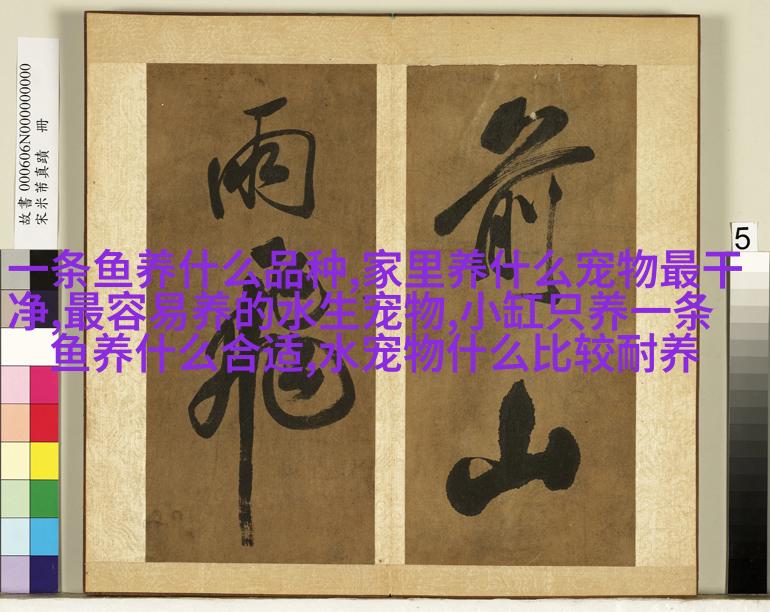 故書 000606N000000000
宋米芾真蹟 冊
前
山
雨
飛
5
一条鱼养什么品种,家里养什么宠物最干
净,最容易养的水生宠物,小缸只养一条
鱼养什么合适,水宠物什么比较耐养